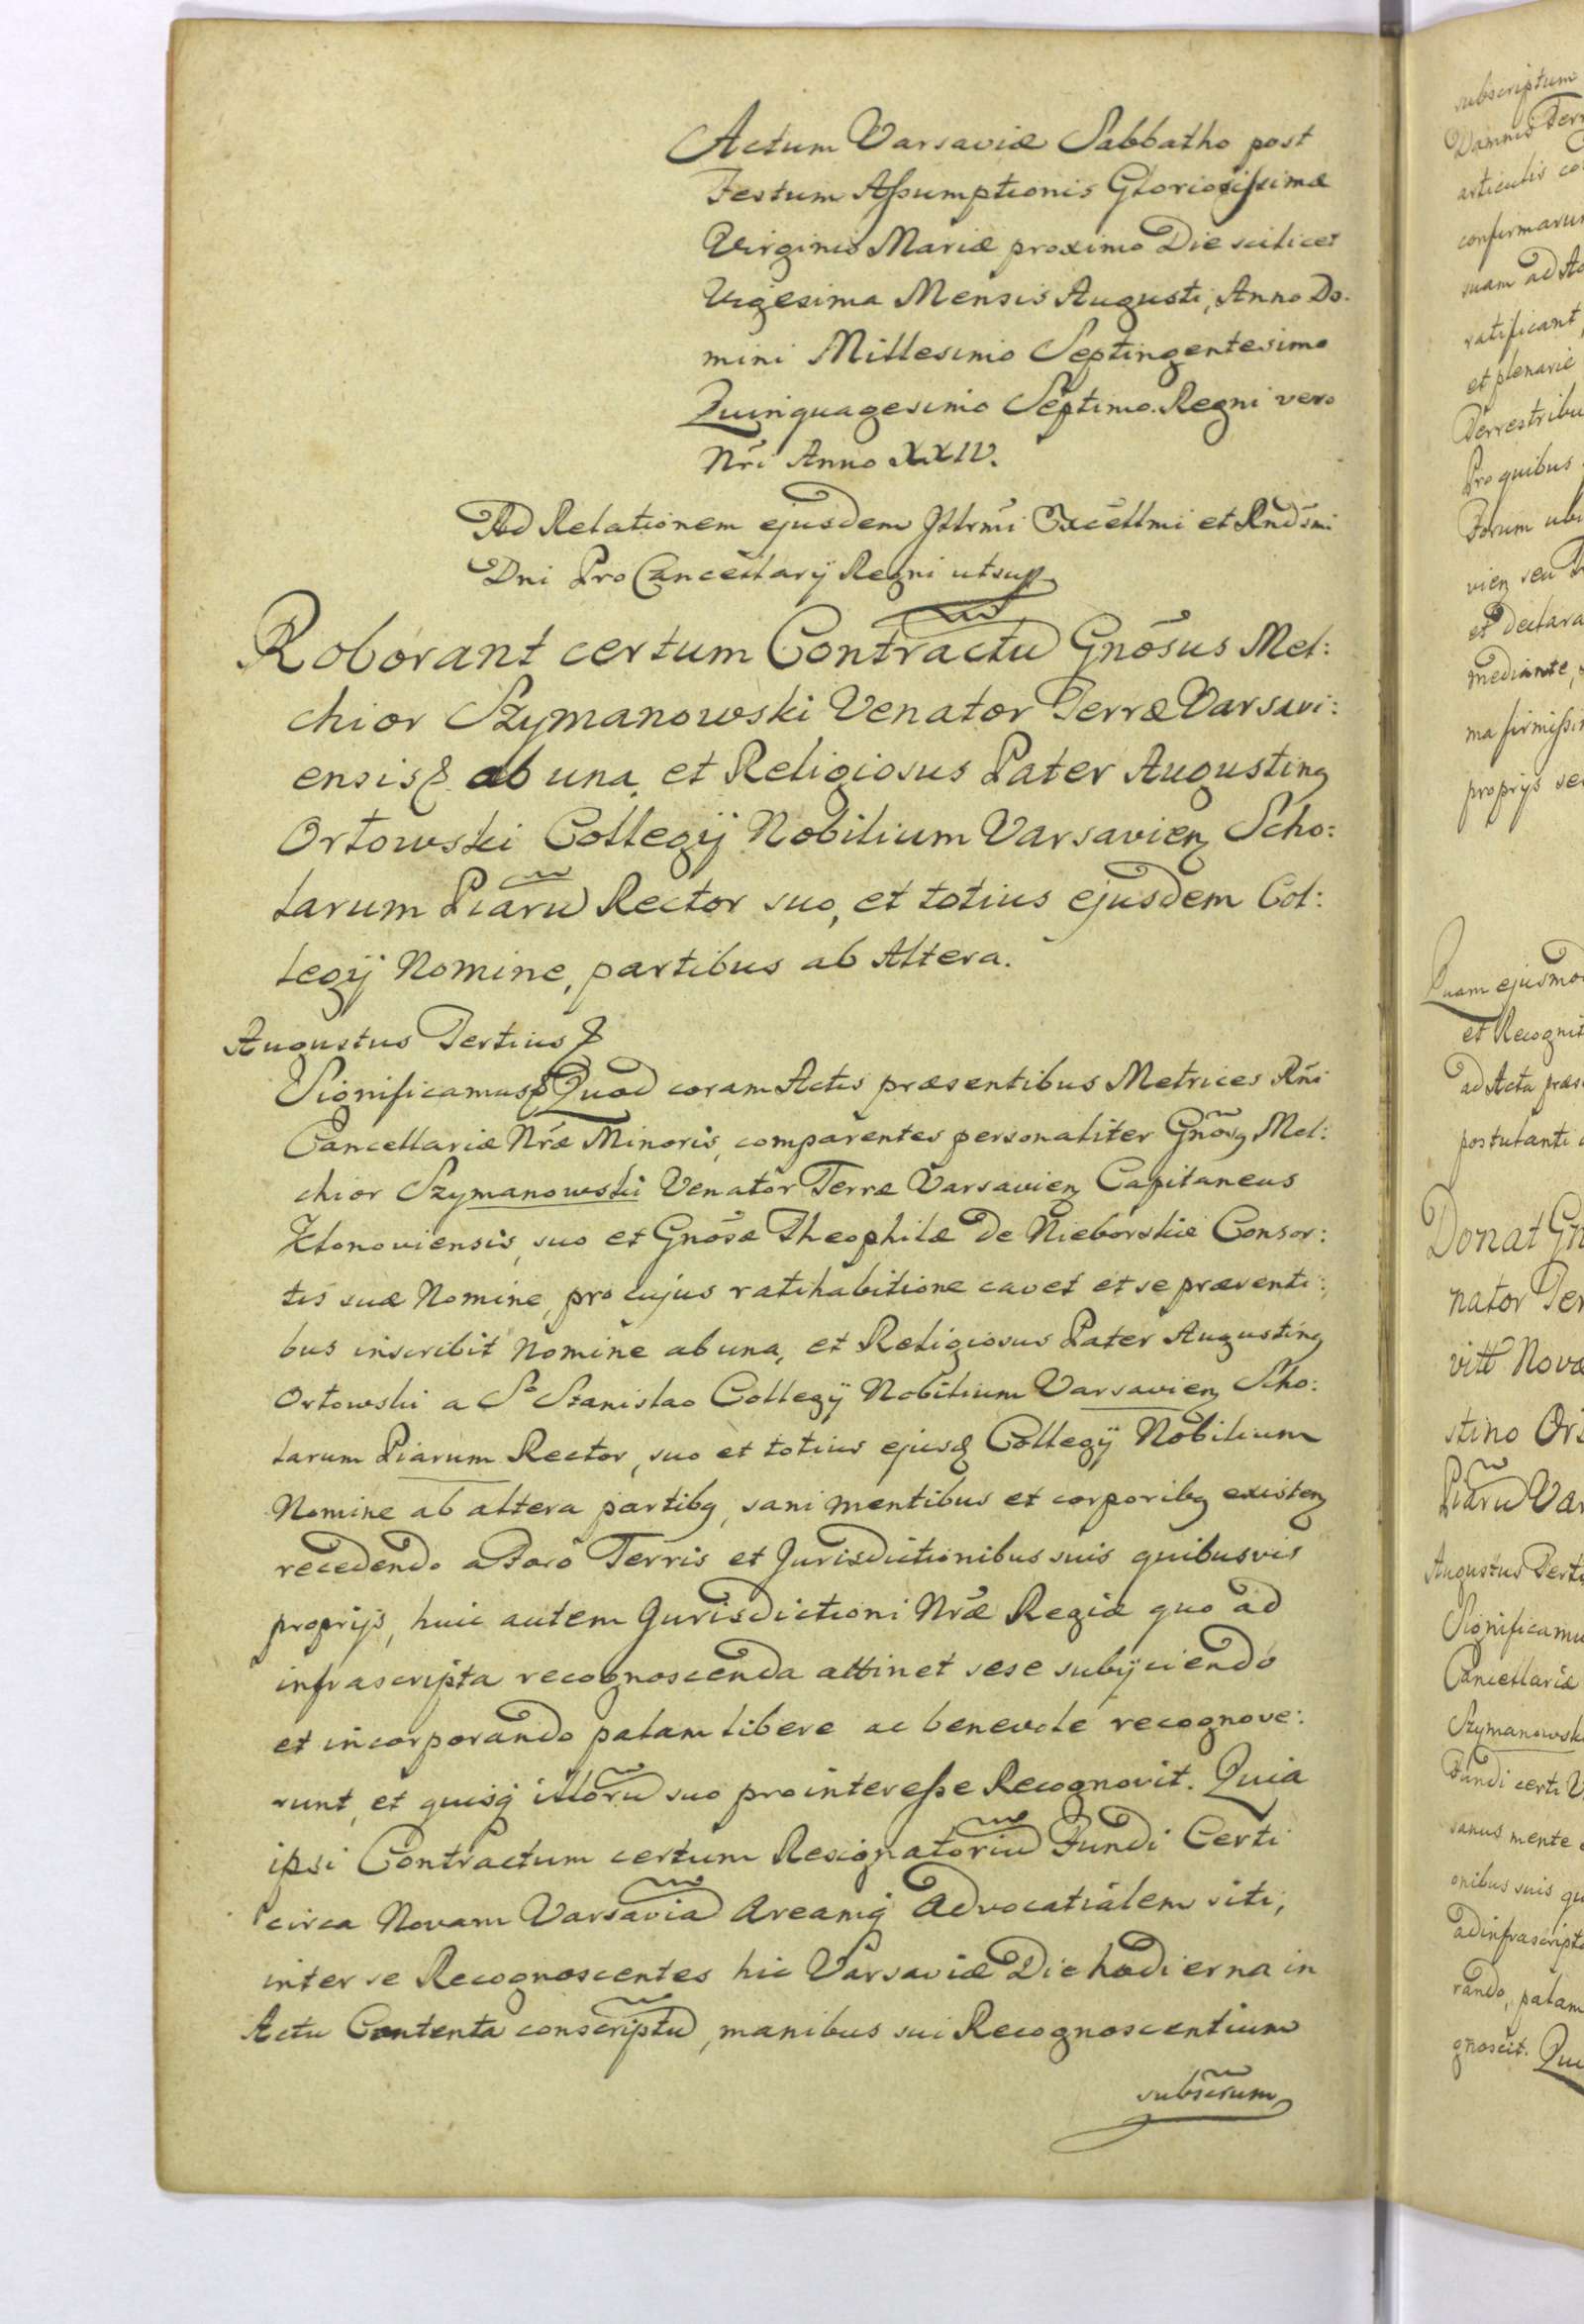 Actum Varsaviæ Sabbatho post
Festum Assumptionis Gloriosissimæ
Virginis Mariæ proximo Die scilicet
Vigesima Mensis Augusti, Anno Do.
mini Millesimo Septingentesimo
Quinquagesimo Septimo. Regni vero
Nr̃i Anno XXIV.
Ad Relationem ejusdem Jllrm̃i Excellm̃i et Rnds̃mi
Dni ProCancellarij Regni utsup
Roborant certum Contractũ Gnõsus Mel:
chior Szymanowski Venator Terræ Varsavi:
ensis ab una, et Religiosus Pater Augustinꝯ
Orłowski Collegij Nobilium Varsavien Scho:
larum Piarũ Rector suo, et totius ejusdem Col:
legij Nomine, partibus ab Altera.
Augustus Tertius
Significamus Quod coram Actis præsentibus Metrices Rñi
Cancellariæ Nr̃æ Minoris, comparentes personaliter Gnõsꝯ Mel:
chior Szymanowski Venator Terræ Varsavien Capitaneus
Klonoviensis, suo et Gnõsæ Theophilæ De Nieborskie Consor:
tis suæ Nomine, pro cujus ratihabitione cavet et se præsenti:
bus inscribit Nomine ab una, et Religiosus Pater Augustinꝯ
Orłowski a So Stanislao Collegij Nobilium Varsavien Scho:
larum Piarum Rector, suo et totius ejusꝗ Collegij Nobilium
Nomine ab altera partibꝯ, sani mentibus et corporibꝯ existen
recedendo a Foro Terris et Jurisdictionibus suis quibusvis
proprijs, huic autem Jurisdictioni Nr̃æ Regiæ quo ad
infrascripta recognoscenda attinet sese subijciendo
et incorporando palam libere ac benevole recognove:
runt, et quisꝗ illorũ suo pro interesse Recognovit. Quia
ipsi Contractum certum Resignatoriũ Fundi Certi
circa Novam Varsaviã Areamꝗ Advocatialem siti,
inter se Recognoscentes hic Varsaviæ Die hodierna in
Actu Contenta conscriptũ, manibus sui Recognoscentium
subscrum
subscriptum
articulis co
confirmarun
suam ad Ac
ratificant
et plenarie
Terrestribu
Pro quibus
Forum ubi
et declara
mediante,
ma firmissi
proprijs se
Quam ejusmod
et Recognit
ad Acta præs
postulanti
Donat Gn
nator Ter
vitt Novæ
stino Orł
Piarũ Var
Augustus Terti
Significamu
Cancellariæ
Szymanowsk
Fundi certi V
sanus mente
onibus suis qu
ad infrascripta
rando, palam
gnoscit. Qui